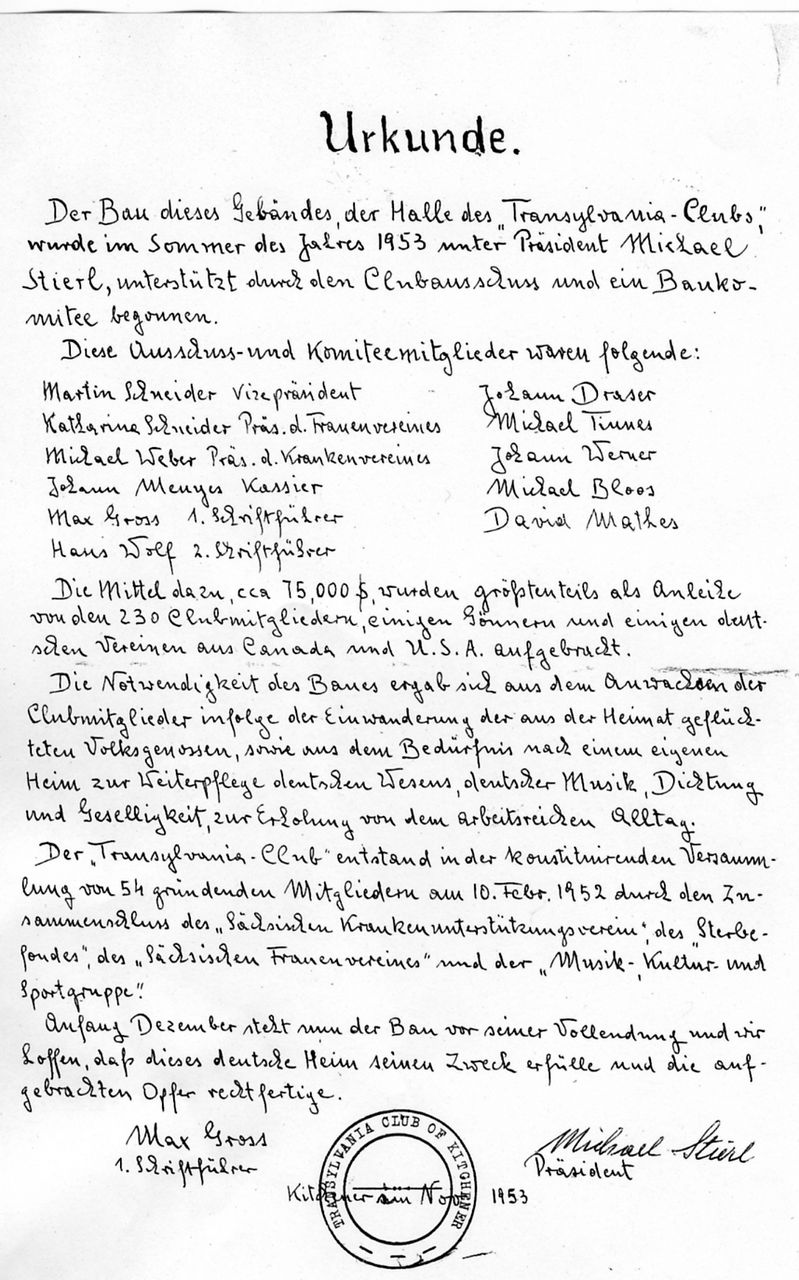 Urkunde.
Der Bau dieses Gebäudes, der Halle des „Transylvania-Clubs“,
wurde im Sommer des Jahres 1953 unter Präsident Michael
Stierl, unterstützt durch den Clubausschuss und ein Bauko-
mitee begonnen.
Diese Ausschuss- und Komiteemitglieder waren folgende:
Martin Schneider Vizepräsident
Katharina Schneider Präs. d. Frauenvereines
Michael Weber Präs. d. Krankenvereines
Johann Menges Kassier
Max Gross 1. Schriftführer
Hans Wolf 2. Schriftführer
Johann Draser
Michael Tinnes
Johann Werner
Michael Bloos
David Mathes
Die Mittel dazu, cca 75,000 $, wurden größtenteils als Anleihe
von den 230 Clubmitgliedern, einigen Gönnern und einigen deut-
schen Vereinen aus Canada und U.S.A. aufgebracht.
Die Notwendigkeit des Baues ergab sich aus dem Anwachsen der
Clubmitglieder infolge der Einwanderung der aus der Heimat geflüch-
teten Volksgenossen, sowie aus dem Bedürfnis nach einem eigenen
Heim zur Weiterpflege deutschen Wesens, deutscher Musik, Dichtung
und Geselligkeit, zur Erholung von dem arbeitsreichen Alltag.
Der „Transylvania-Club“ entstand in der konstituirenden Versamm-
lung von 54 gründenden Mitgliedern am 10. Febr. 1952 durch den Zu-
sammenschluss des „Sächsischen Krankenunterstützungsverein“, des „Sterbe-
fondes“, des „Sächsischen Frauenvereines“ und der „Musik-, Kultur- und
Sportgruppe“.
Anfang Dezember steht nun der Bau vor seiner Vollendung und wir
hoffen, daß dieses deutsche Heim seinen Zweck erfülle und die auf-
gebrachten Opfer rechtfertige.
Max Gross
1. Schriftführer
TRANSYLVANIA CLUB OF KITCHENER
Michael Stierl
Präsident
Kitchener im Nov. 1953